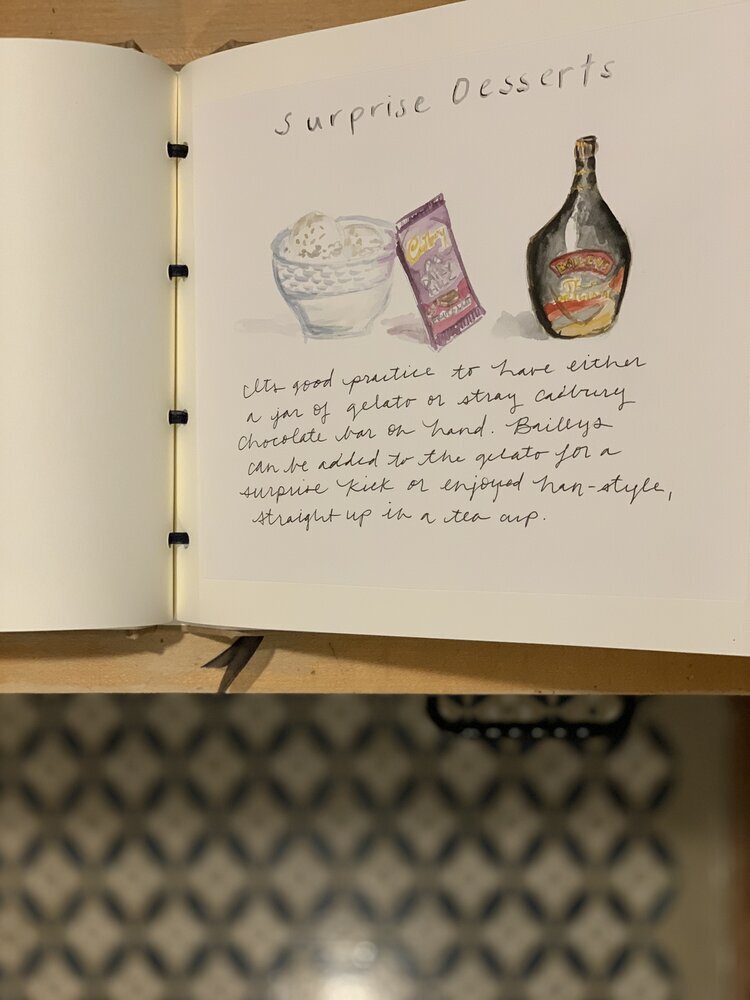 Surprise Desserts
Cadbury
Baileys
Its good practice to have either
a jar of gelato or stray cadbury
chocolate bar on hand. Baileys
can be added to the gelato for a
surprise kick or enjoyed nan-style,
straight up in a tea cup.